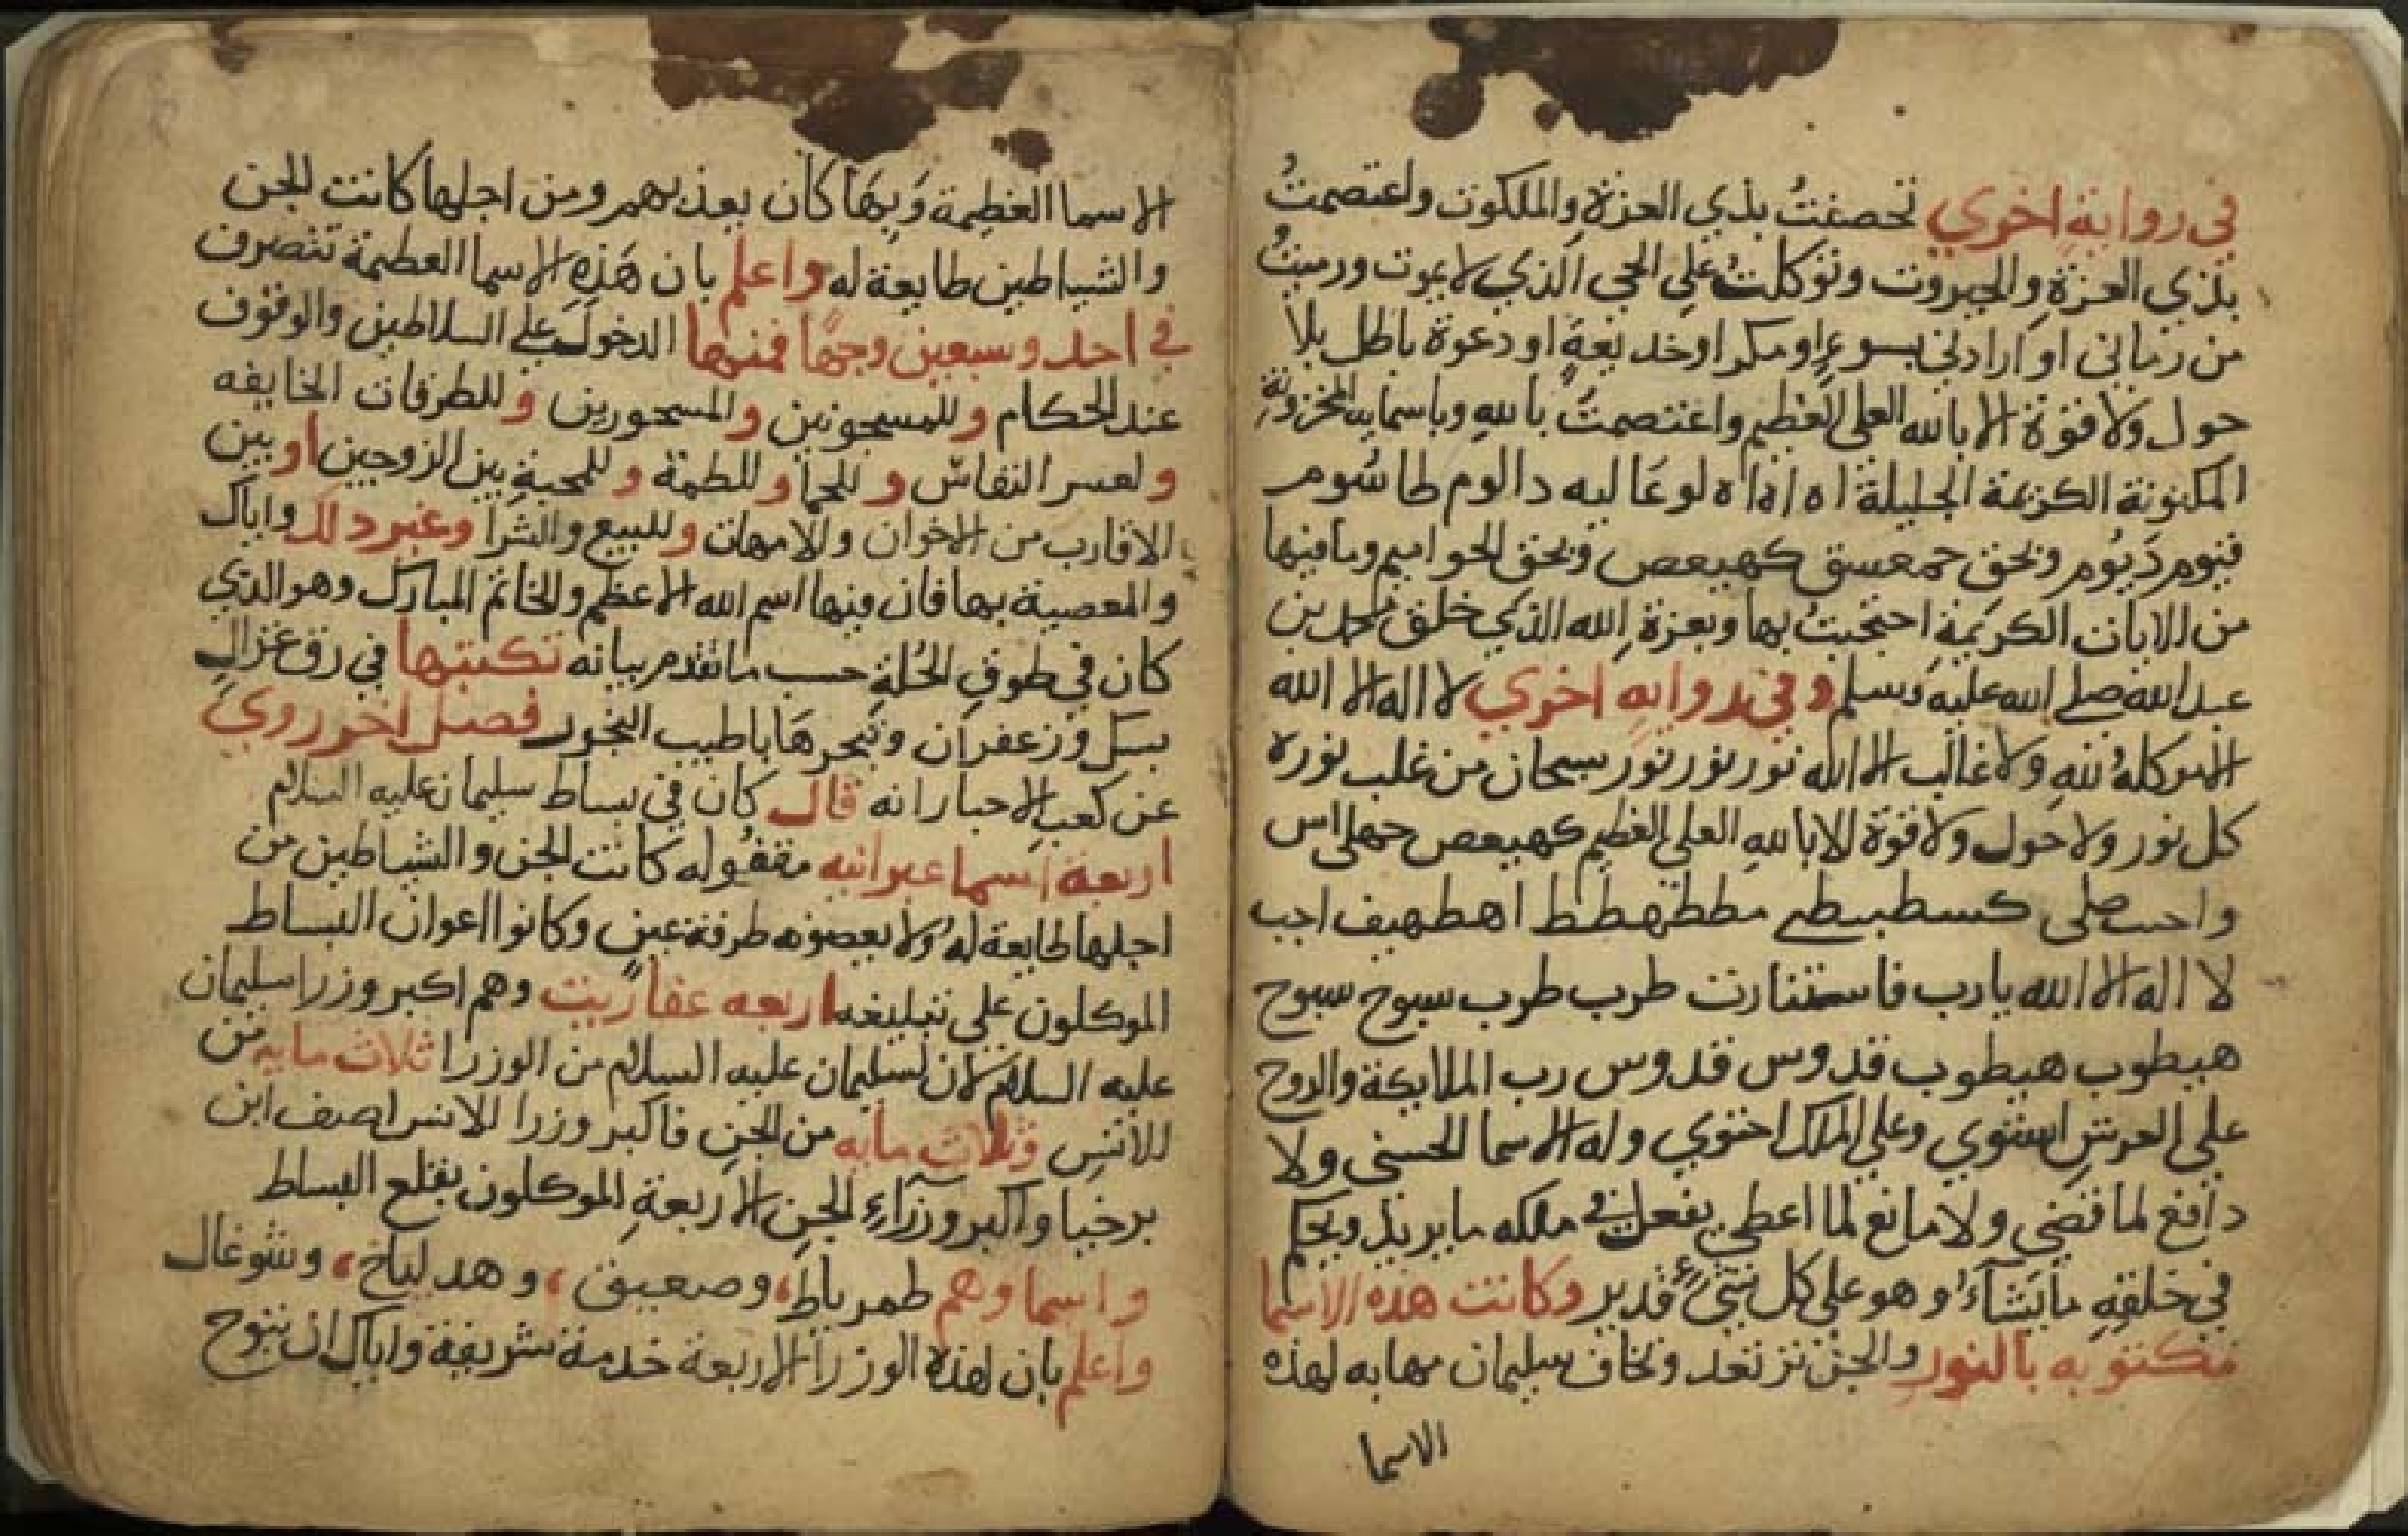 في رواية اخري تحصنتُ بذي العزة والملكوت واعتصمتُ
بذي العزة والجبروت وتوكلتُ علي الحي الذي لا يموت ورميتُ
من رماني او ارادني بسوءٍ او مكر او خديعةٍ او دعوة باطل بلا
حول ولا قوة الا بالله العلي العظيم واعتصمتُ بالله وباسمايه المخزونة
المكنونة الكريمة الجليلة اه اه اه لوعاليه دالوم طاشوم
فيوم ديوم وبحق حمعسق كهيعص وبحق الحواميم وما فيها
من الايات الكريمة احتجبتُ بها وبعزة الله الذي خلق محمد بن
عبد الله صلي الله عليه وسلم وفي رواية اخري لا اله الا الله
الامر كلهُ لله ولا غالب الا الله نور نور نور سبحان من غلب نوره
كل نور ولا حول ولا قوة الا بالله العلي العظيم كهيعص
اجب
لا اله الا الله يا رب فاستنارت طرب طرب سبوح سبوح
هيطوب هيطوب قدوس قدوس رب الملايكة والروح
علي العرش استوي وعلي الملك احتوي وله الاسما الحسني ولا
دافع لما قضي ولا مانع لما اعطي يفعل في ملكه ما يريد ويحكم
في خلقهِ ما يَشآءُ وهو علي كل شيءٍ قدير وكانت هذه الاسما
مكتوبه بالنور والجن ترتعد وتخاف سليمان مهابه لهذه
الاسما
الاسما العظيمة وَبِهَا كان يعذبهم ومن اجلها كانت الجن
والشياطين طايعة له واعلم بان هَذِهِ الاسما العظيمة تتصرف
في احد وسبعين وجهًا فمنها الدخول علي السلاطين والوقوف
عند الحكام وللمسجونين والمسحورين وللطرقات الخايفه
ولعسر النفاس وللحما وللطمة وللمحبة بين الزوجين او بين
الاقارب من الاخوان والامهات وللبيع والشرا وغير ذلك واياك
والمعصية بها فان فيها اسم الله الاعظم والخاتم المبارك وهو الذي
كان في طوق الحُلة حسب ما تقدم بيانه تكتبها في رق غزال
بمسك وزعفران وتبخرهَا باطيب البخور فصل اخر روي
عن كعب الاحبار انه قال كان في بساط سليمان عليه السلام
اربعة اسما عبرانيه مقفوله كانت الجن والشياطين من
اجلها طايعة لهُ ولا يعصونه طرفة عين وكانوا اعوان البساط
الموكلون علي تبليغه اربعه عفاريت وهم اكبر وزرا سليمان
عليه السلام لان لسليمان عليه السلام من الوزرا ثلاث مايه من
الانس وثلاث مايه من الجن فاكبر وزرا الانس اصف ابن
برخيا واكبر وزرآءِ الجن الاربعةِ الموكلون بقلع البساط
واسماوهم طمرياط، وصعيق، وهدلياخ، وشوغال
واعلم بان لهذه الوزرا الاربعة خدمة شريفة واياك ان تبوح